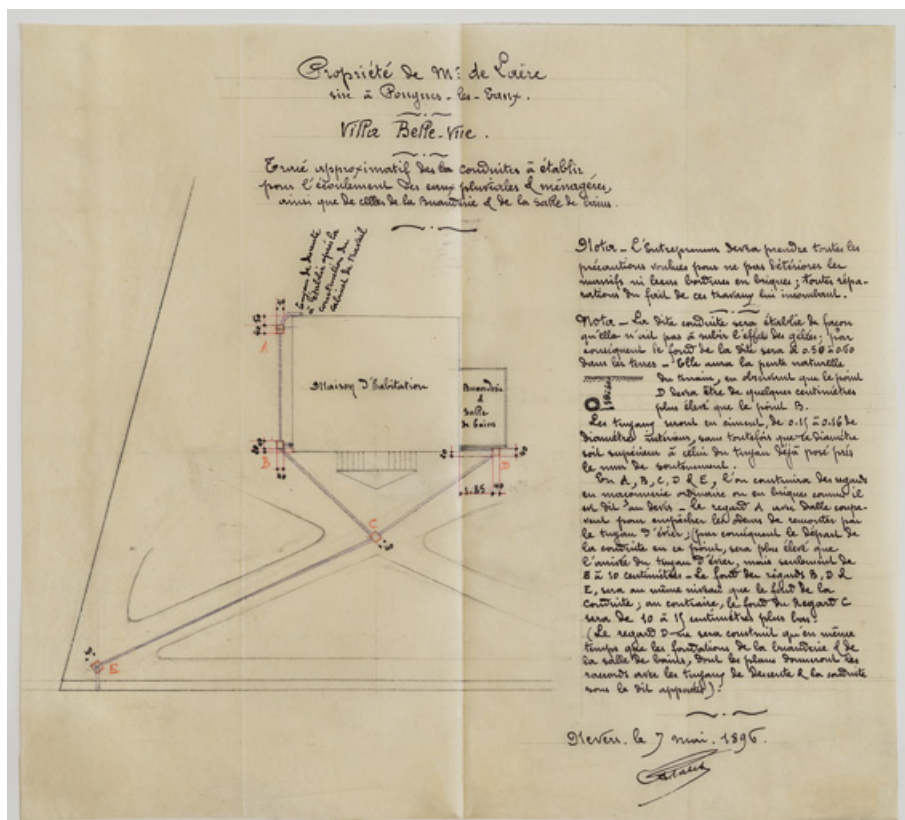 Propriété de Mr de Laëre
sise à Pougues-les-Eaux.
Villa Belle-Vue.
Tracé approximatif des conduites à établir
pour l'écoulement des eaux pluviales & ménagères,
ainsi que de celles de la Buanderie & de la Salle de bains.
Tuyau de descente
à établir après la
construction du
Cabinet de travail
A
Maison d'habitation
Buanderie
&
Salle
de bains
B
D
1.85
C
E
Nota - L'Entrepreneur devra prendre toutes les
précautions voulues pour ne pas détériorer les
massifs ni leurs bordures en briques; toutes répa-
rations du fait de ces travaux lui incombant.
Nota - La dite conduite sera établie de façon
qu'elle n'ait pas à subir l'effet des gelées; par
conséquent le fond de la dite sera à 0.50 à 0.60
dans les terres - Elle aura la pente naturelle
du terrain, en observant que le point
D devra être de quelques centimètres
plus élevé que le point B.
Les tuyaux seront en ciment, de 0.15 à 0.16 de
diamètre intérieur, sans toutefois que le diamètre
soit supérieur à celui du tuyau déjà posé près
le mur de soutènement.
En A, B, C, D & E, l'on construira des regards
en maçonnerie ordinaire ou en briques comme il
est dit au devis - Le regard A avec dalle coupe-
vent pour empêcher les odeurs de remonter par
le tuyau d'évier; par conséquent le départ de
la conduite en ce point, sera plus élevé que
l'arrivée du tuyau d'évier, mais seulement de
8 à 10 centimètres - Le fond des regards B, D &
E, sera au même niveau que le fond de la
Conduite; au contraire, le fond du Regard C
sera de 10 à 15 centimètres plus bas.
(Le regard D ne sera construit qu'en même
temps que les fondations de la buanderie & de
la salle de bains, dont les plans donneront les
raccords avec les tuyaux de descente & la conduite
sous le dit appentis).
Nevers, le 7 mai. 1896.